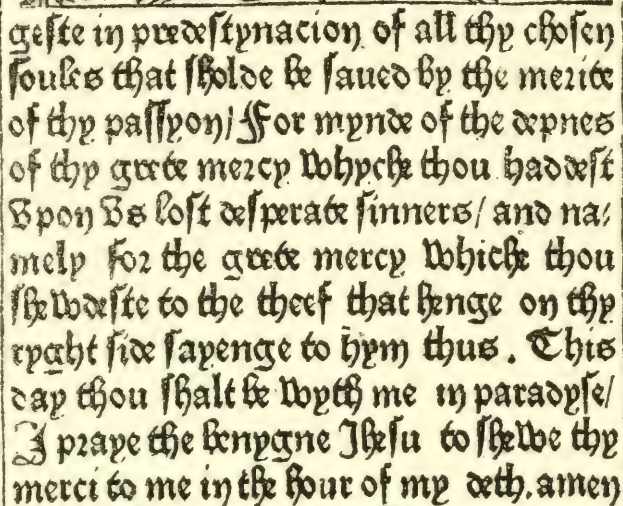 geste in predestynacion of all thy chosen
soules that sholde be saued by the merite
of thy passyon/ For mynde of the depnes
of thy grete mercy whyche thou haddest
vpon vs lost desperate sinners/ and na⸗
mely for the grete mercy whiche thou
shewdeste to the theef that henge on thy
ryght side sayenge to hym thus. This
day thou shalt be wyth me in paradyse/
I praye the benygne Jhesu to shewe thy
merci to me in the hour of my deth. amen